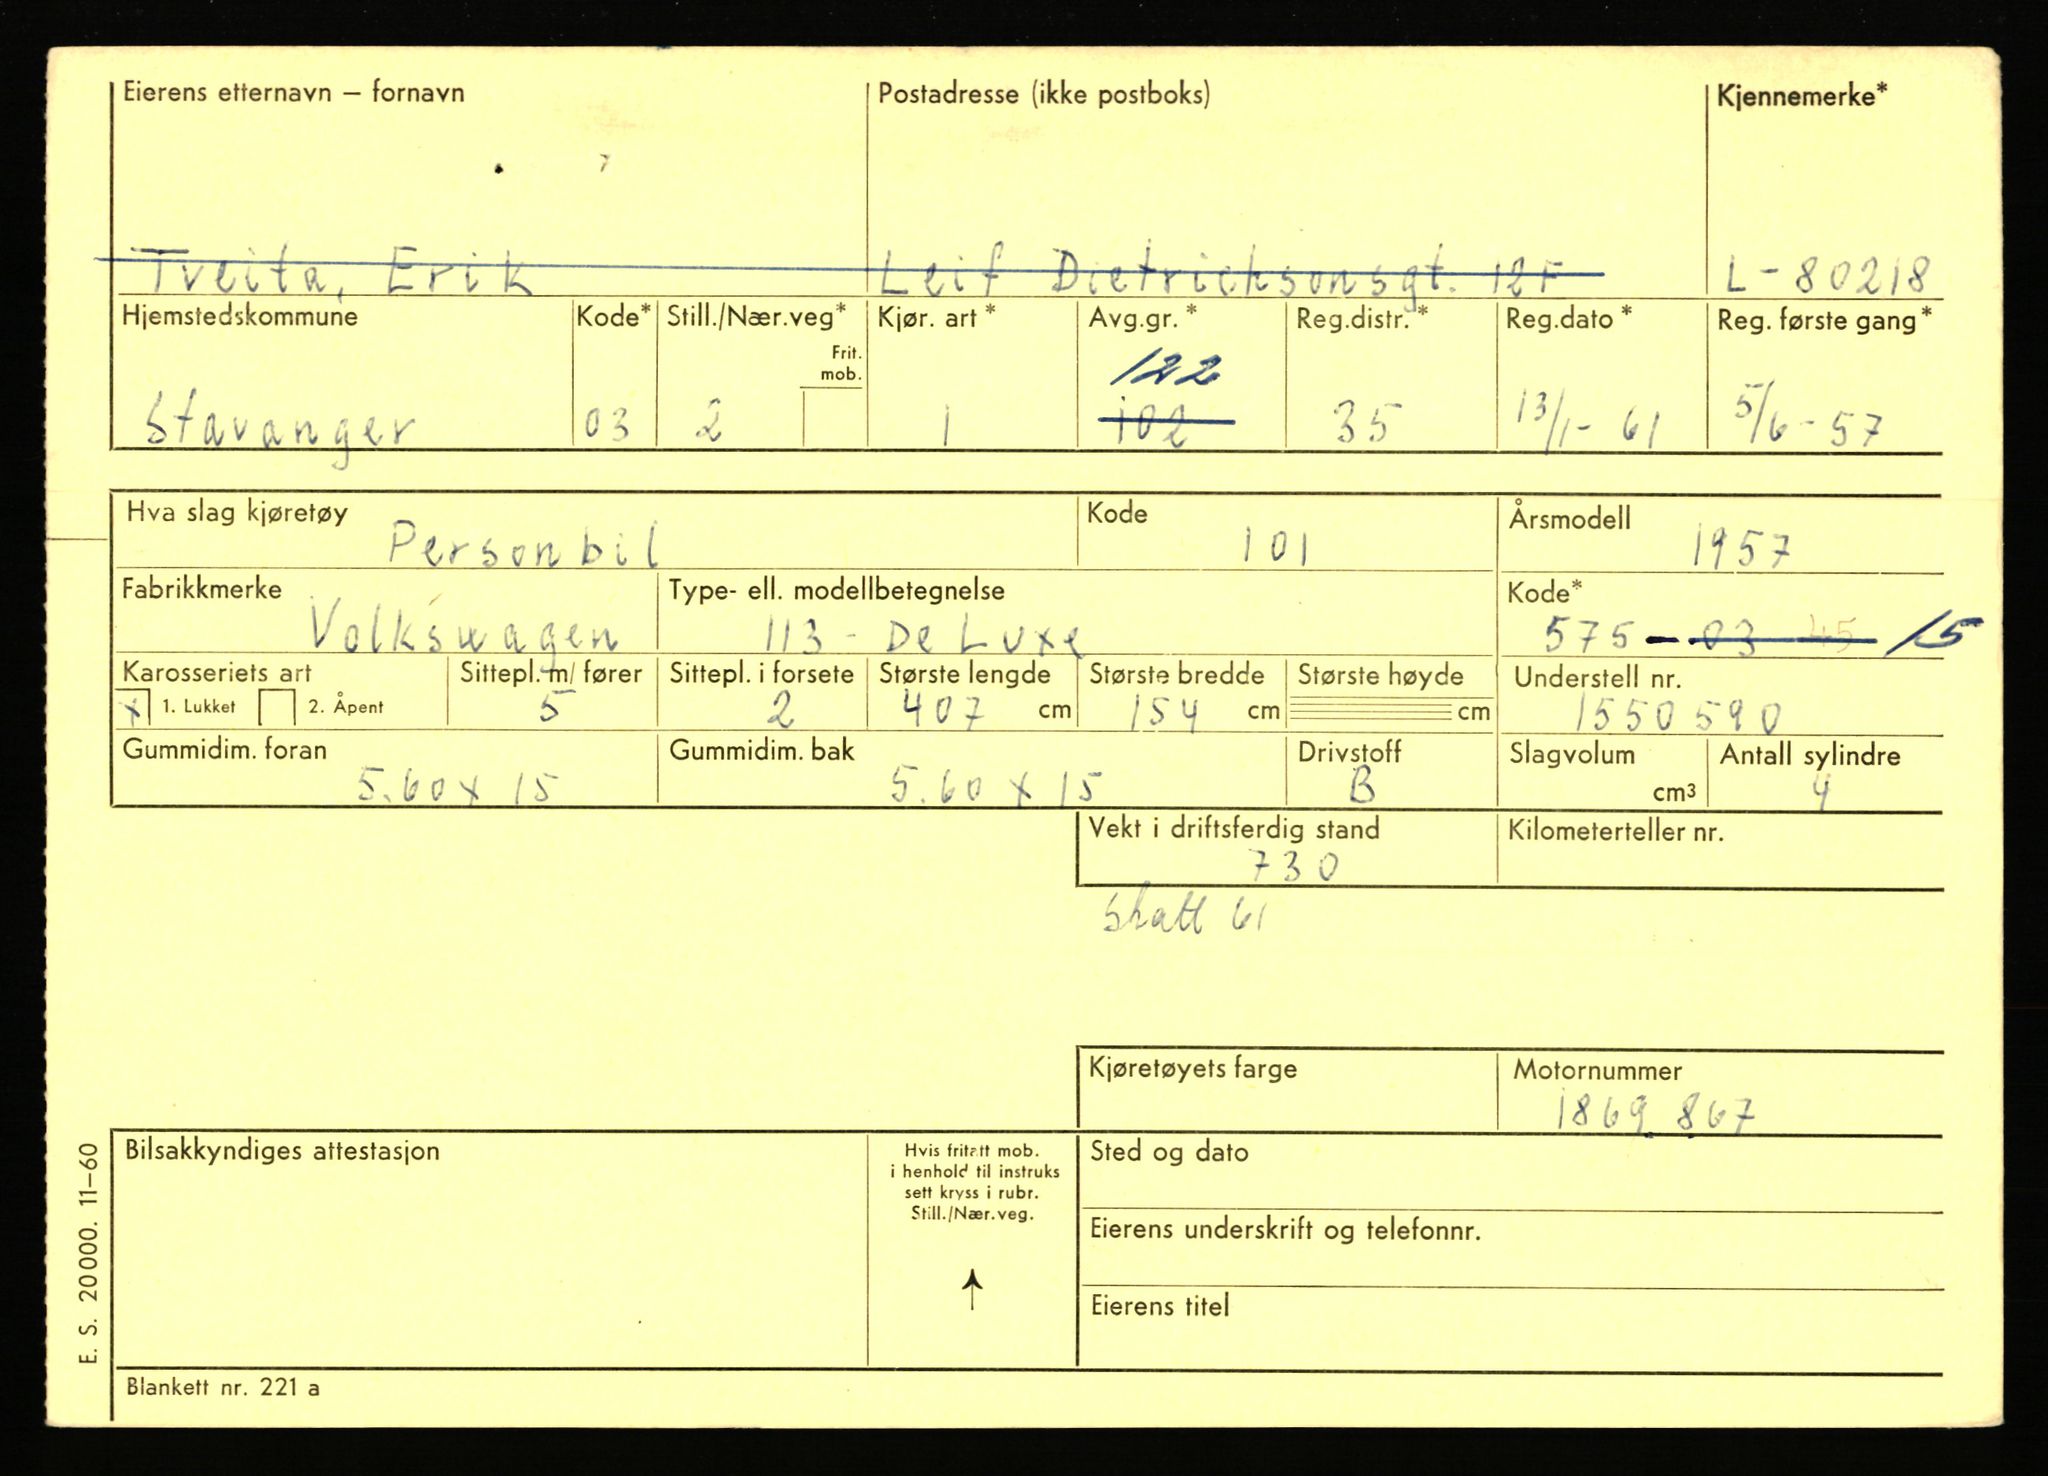 Eierens etternavn – fornavn Postadresse (ikke postboks) Kjennemerke*
Tveita, Erik Leif Dietrichsonsgt. 12F L-80218
Hjemstedskommune Kode* Still./Nær.veg* Kjør. art* Avg.gr.* Reg.distr.* Reg.dato* Reg. første gang*
Frit.
mob.
122
Stavanger 03 2 1 102 35 13/1-61 5/6-57
Hva slag kjøretøy Kode Årsmodell
Personbil 101 1957
Fabrikkmerke Type- ell. modellbetegnelse Kode*
Volkswagen 113 - De Luxe 575 - 03 45 15
Karosseriets art Sittepl. m/ fører Sittepl. i forsete Største lengde Største bredde Største høyde Understell nr.
x 1. Lukket 2. Åpent 5 2 407 cm 154 cm cm 1550590
Gummidim. foran Gummidim. bak Drivstoff Slagvolum Antall sylindre
5.60 x 15 5.60 x 15 B cm³ 4
Vekt i driftsferdig stand Kilometerteller nr.
730
skatt 61
Kjøretøyets farge Motornummer
1869867
Bilsakkyndiges attestasjon
Hvis fritatt mob.
i henhold til instruks
sett kryss i rubr.
Still./Nær.veg.
Sted og dato
Eierens underskrift og telefonnr.
Eierens titel
Blankett nr. 221 a
E. S. 20000. 11–60